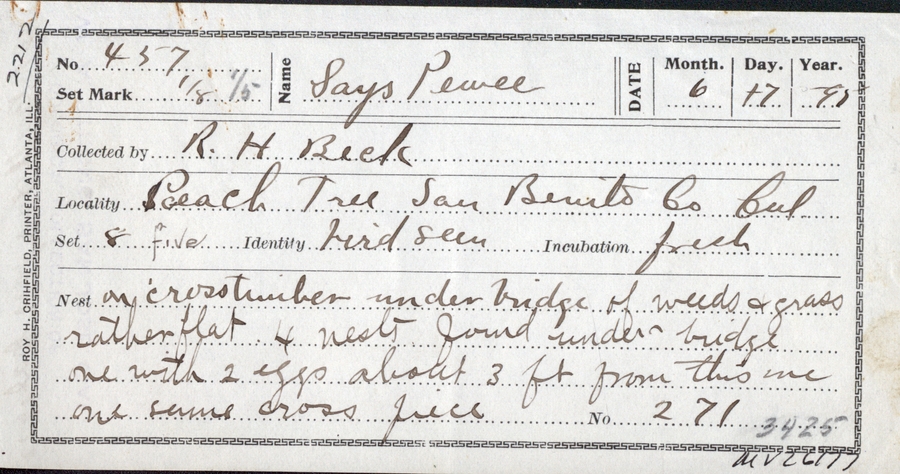 2212
No. 457
Set Mark 1/8 1/5
Name Says Pewee
DATE
Month. Day. Year.
6 17 95
Collected by R. H Beck
Locality Peach Tree San Benito Co Cal
Set 8 five Identity bird seen Incubation fresh
Nest on crosstimber under bridge of weeds & grass
rather flat 4 nests found under bridge
one with 2 eggs about 3 ft from this one
one same cross piece No 271
3425
ROY H. CRIHFIELD, PRINTER, ATLANTA, ILL.